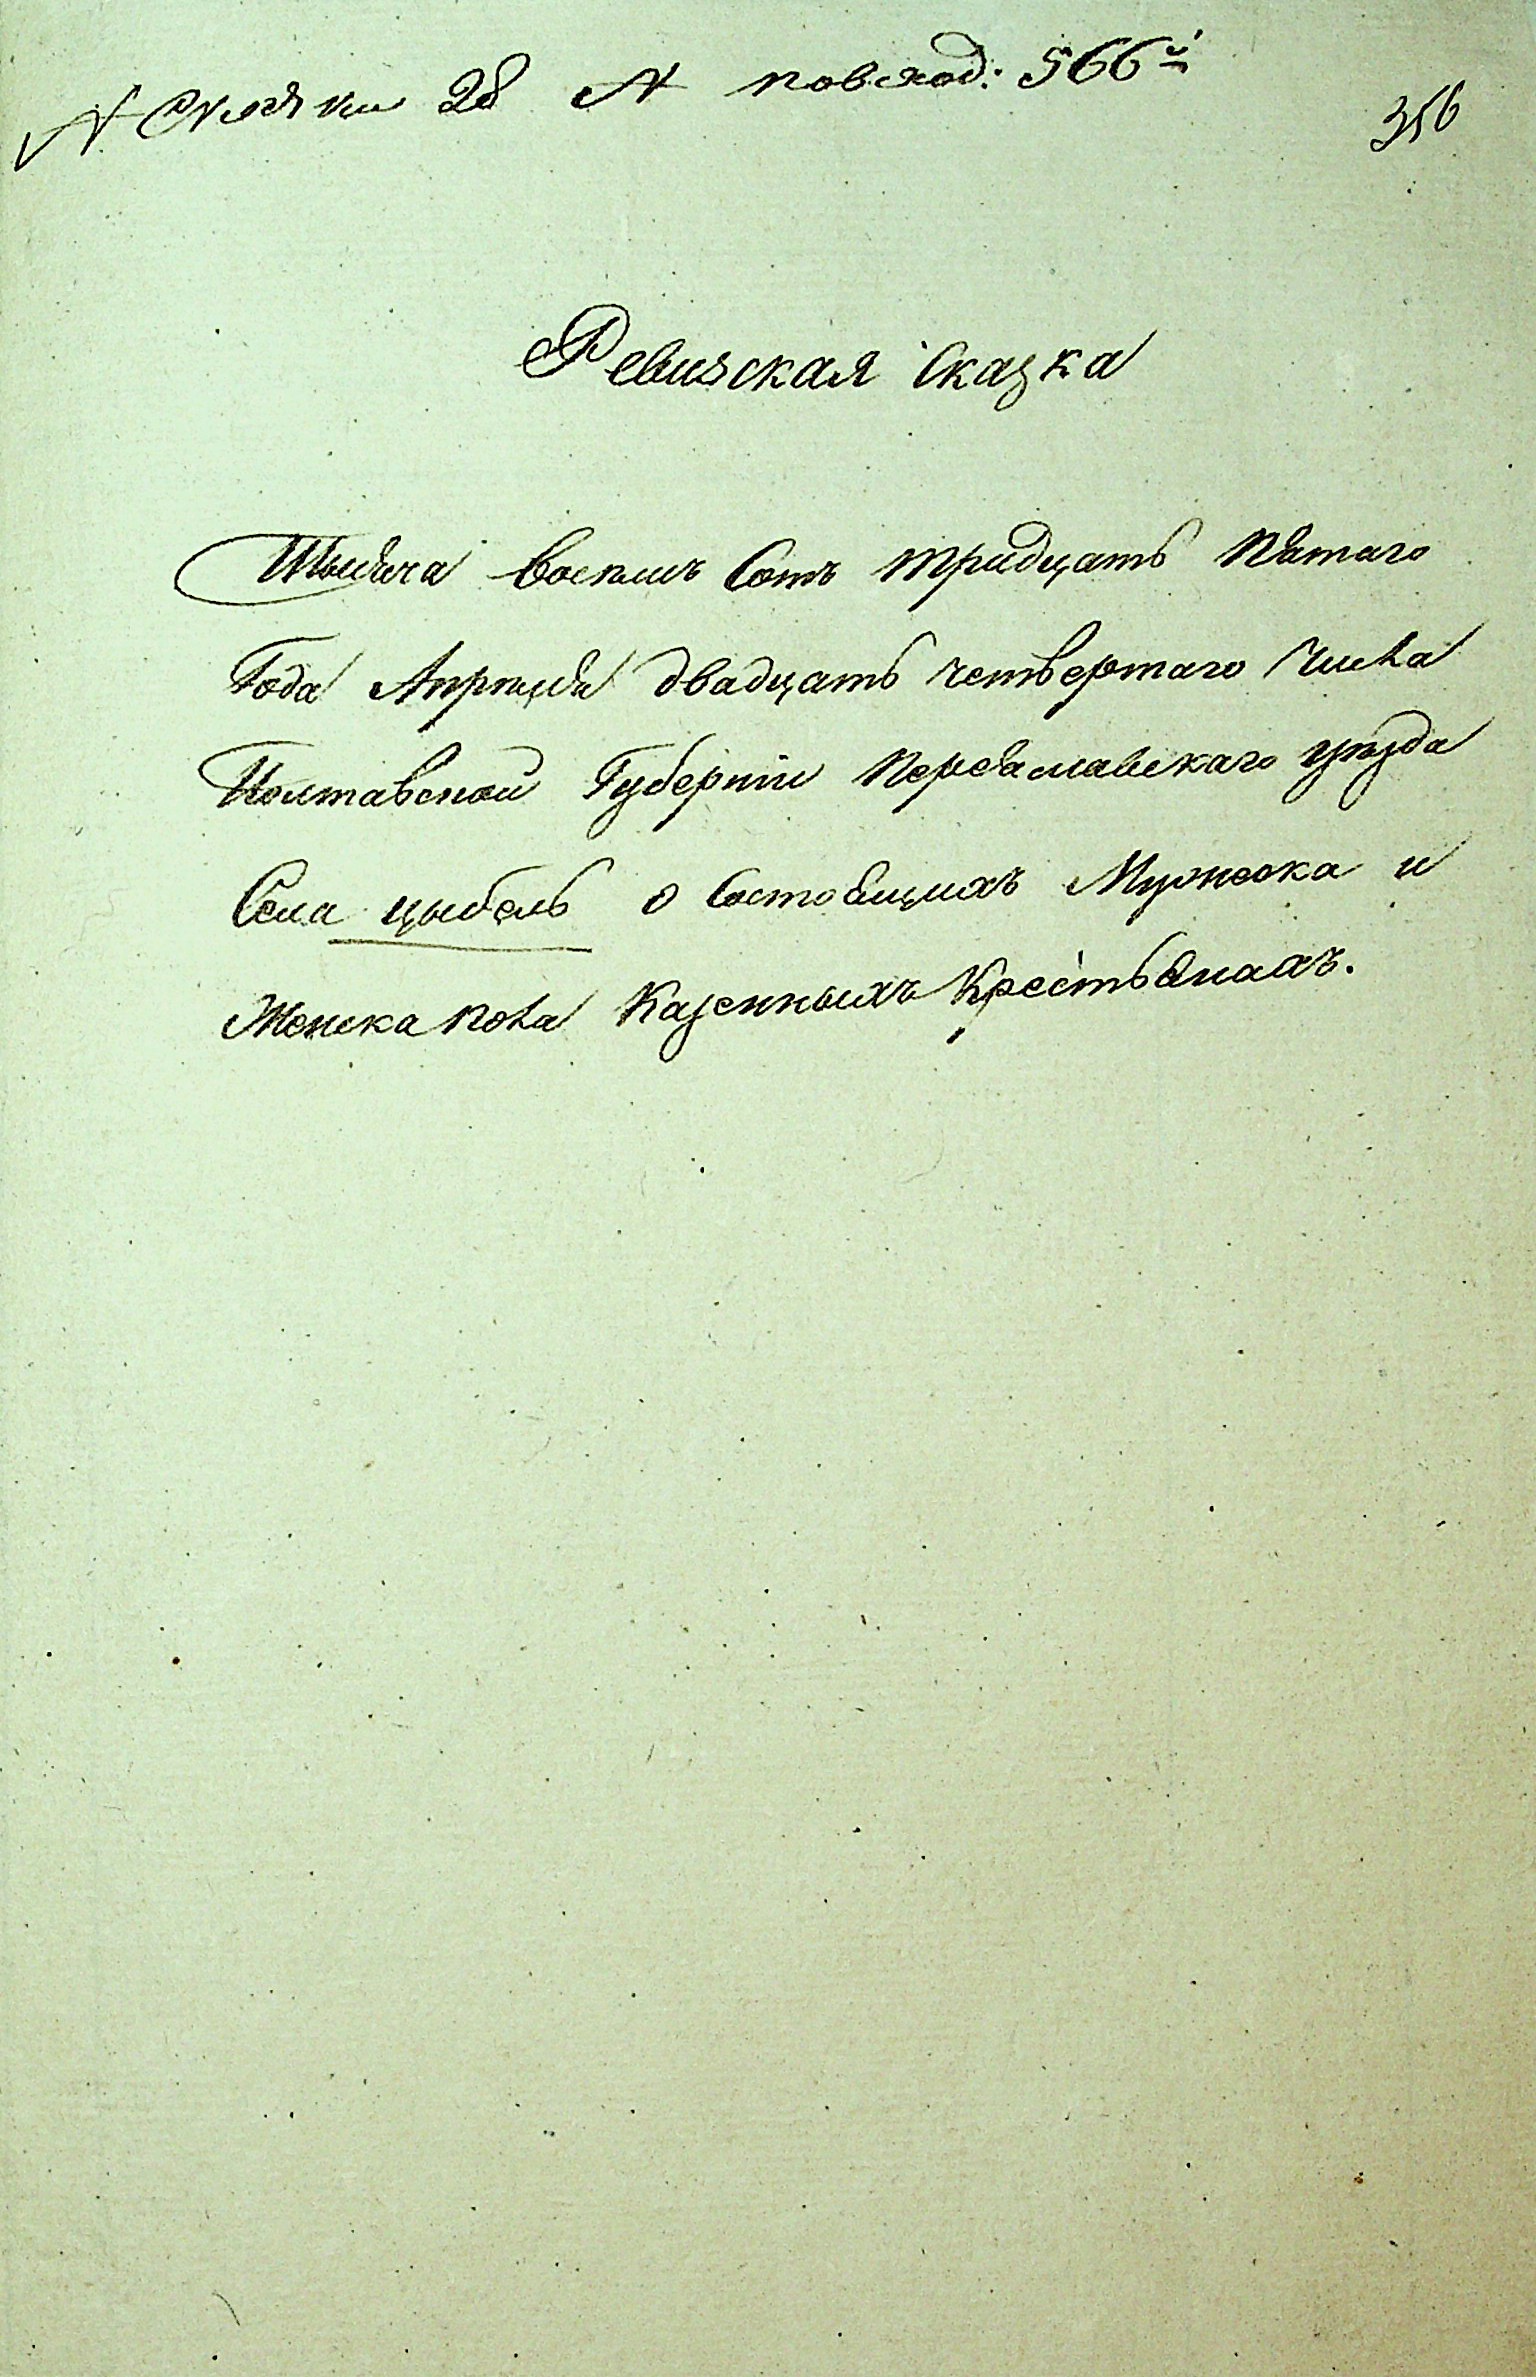 N Связки 28 N повход: 566й
356
Ревизская Сказка
Тысяча восемь Сотъ тридцать пятаго
Года Апреля двадцать четвертаго числа
Полтавской Губернiи переяславскаго уезда
Села цыбель о Состоящихъ Мужеска и
Женска пола Казенныхъ Крестьянахъ.